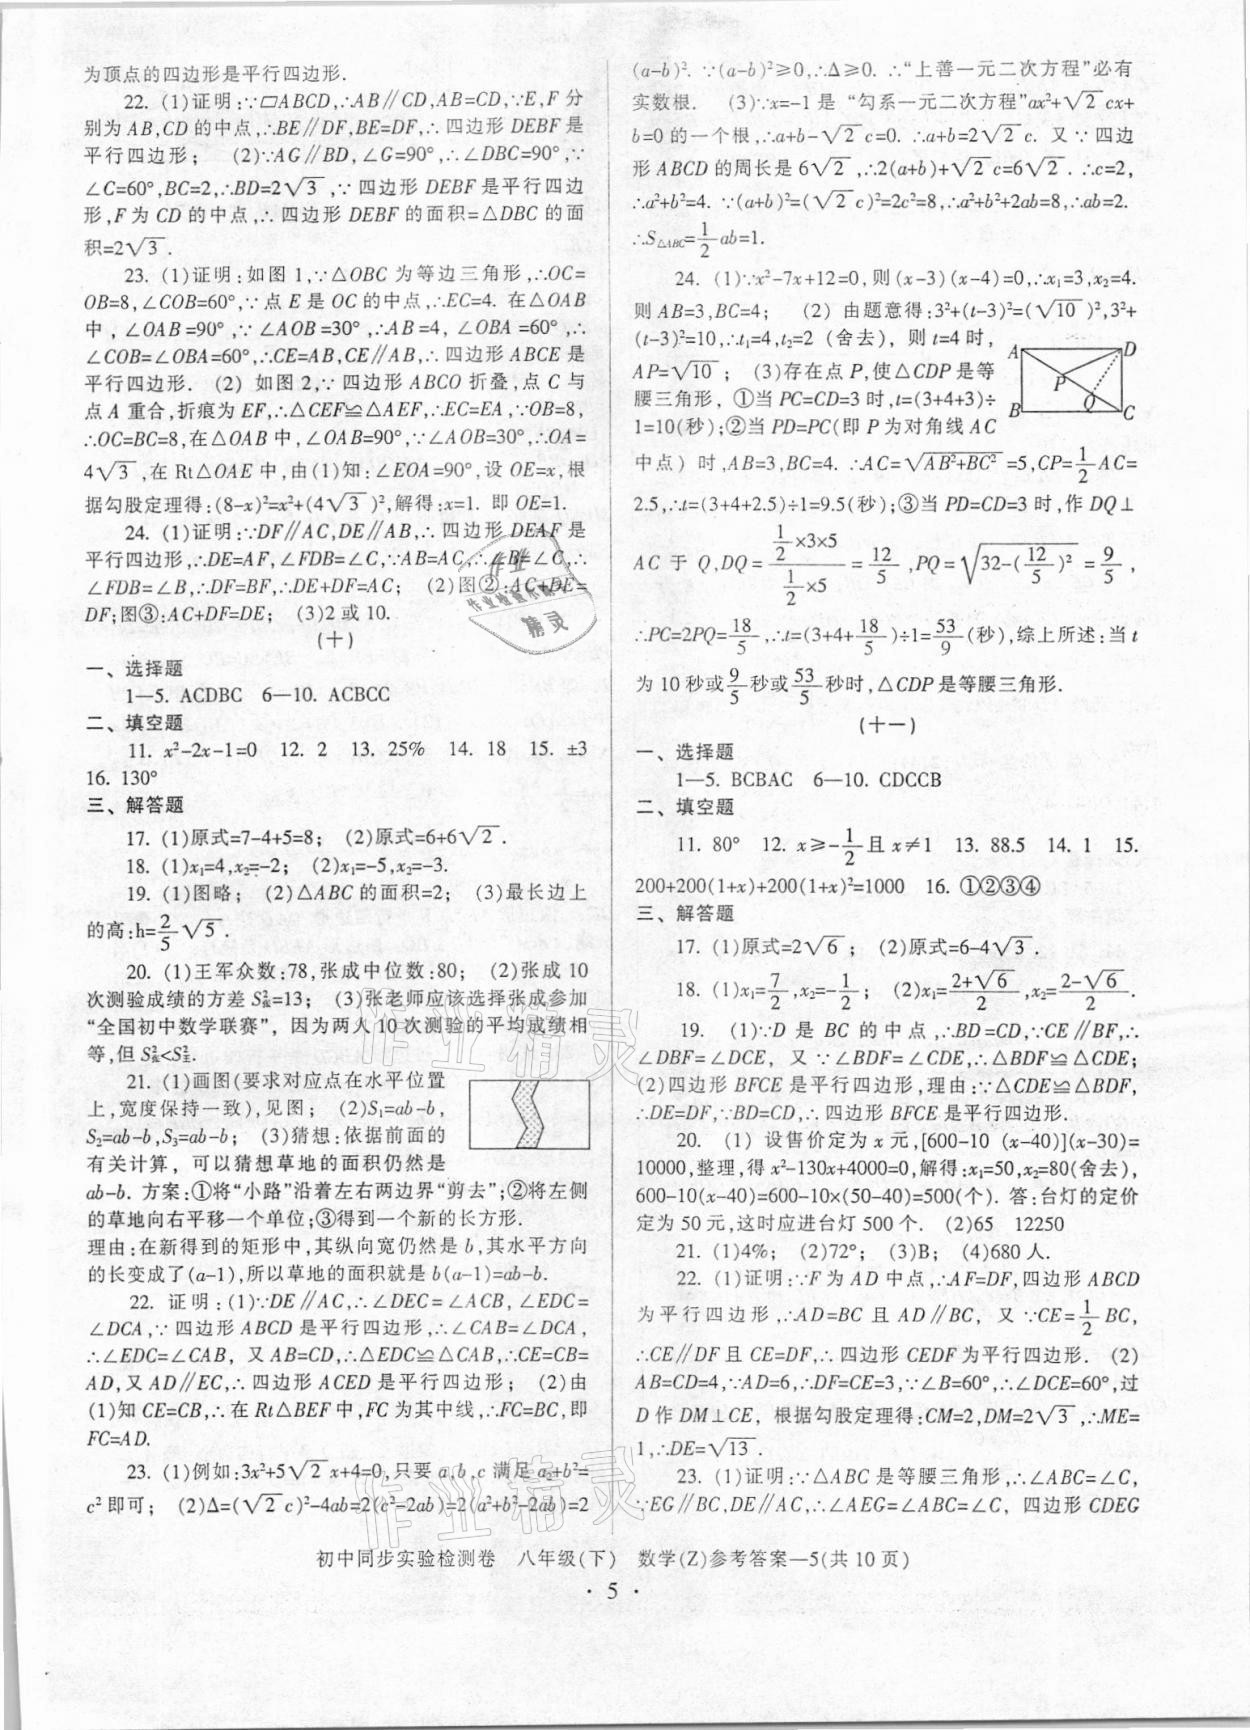 为顶点的四边形是平行四边形.
22. (1)证明:∵▱ABCD,∴AB∥CD,AB=CD,∵E,F分
别为AB,CD的中点,∴BE∥DF,BE=DF,∴四边形DEBF是
平行四边形; (2)∵AG∥BD,∠G=90°,∴∠DBC=90°,∵
∠C=60°,BC=2,∴BD=2√3,∵四边形DEBF是平行四边
形,F为CD的中点,∴四边形DEBF的面积=△DBC的面
积=2√3.
23. (1)证明:如图1,∵△OBC为等边三角形,∴OC=
OB=8,∠COB=60°,∵点E是OC的中点,∴EC=4. 在△OAB
中,∠OAB=90°,∵∠AOB=30°,∴AB=4,∠OBA=60°,∴
∠COB=∠OBA=60°,∴CE=AB,CE∥AB,∴四边形ABCE是
平行四边形. (2) 如图2,∵四边形ABCO折叠,点C与
点A重合,折痕为EF,∴△CEF≌△AEF,∴EC=EA,∵OB=8,
∴OC=BC=8,在△OAB中,∠OAB=90°,∵∠AOB=30°,∴OA=
4√3,在Rt△OAE中,由(1)知:∠EOA=90°,设OE=x,根
据勾股定理得:(8-x)²=x²+(4√3)²,解得:x=1. 即OE=1.
24. (1)证明:∵DF∥AC,DE∥AB,∴四边形DEAF是
平行四边形,∴DE=AF,∠FDB=∠C,∵AB=AC,∴∠B=∠C,∴
∠FDB=∠B,∴DF=BF,∴DE+DF=AC; (2)图②:AC+DE=
DF;图③:AC+DF=DE; (3)2或10.
(十)
一、选择题
1—5. ACDBC 6—10. ACBCC
二、填空题
11. x²-2x-1=0 12. 2 13. 25% 14. 18 15. ±3
16. 130°
三、解答题
17. (1)原式=7-4+5=8; (2)原式=6+6√2.
18. (1)x₁=4,x₂=-2; (2)x₁=-5,x₂=-3.
19. (1)图略; (2)△ABC的面积=2; (3)最长边上
的高:h=2/5√5.
20. (1)王军众数:78,张成中位数:80; (2)张成10
次测验成绩的方差S²张=13; (3)张老师应该选择张成参加
“全国初中数学联赛”，因为两人10次测验的平均成绩相
等,但S²张<S²王.
21. (1)画图(要求对应点在水平位置
上,宽度保持一致),见图; (2)S₁=ab-b,
S₂=ab-b,S₃=ab-b; (3)猜想:依据前面的
有关计算，可以猜想草地的面积仍然是
ab-b. 方案:①将“小路”沿着左右两边界“剪去”;②将左侧
的草地向右平移一个单位;③得到一个新的长方形.
理由:在新得到的矩形中,其纵向宽仍然是b,其水平方向
的长变成了(a-1),所以草地的面积就是b(a-1)=ab-b.
22. 证明:(1)∵DE∥AC,∴∠DEC=∠ACB,∠EDC=
∠DCA,∵四边形ABCD是平行四边形,∴∠CAB=∠DCA,
∴∠EDC=∠CAB, 又AB=CD,∴△EDC≌△CAB,∴CE=CB=
AD,又AD∥EC,∴四边形ACED是平行四边形; (2)由
(1)知CE=CB,∴在Rt△BEF中,FC为其中线,∴FC=BC,即
FC=AD.
23. (1)例如:3x²+5√2x+4=0,只要a,b,c满足a₂+b²=
c²即可; (2)Δ=(√2c)²-4ab=2(c²-2ab)=2(a²+b²-2ab)=2
(a-b)². ∵(a-b)²≥0,∴Δ≥0. ∴“上善一元二次方程”必有
实数根. (3)∵x=-1是“勾系一元二次方程”ax²+√2cx+
b=0的一个根,∴a+b-√2c=0. ∴a+b=2√2c. 又∵四边
形ABCD的周长是6√2,∴2(a+b)+√2c=6√2. ∴c=2,
∴a²+b²=4. ∵(a+b)²=(√2c)²=2c²=8,∴a²+b²+2ab=8,∴ab=2.
∴S△ABC=1/2ab=1.
24. (1)∵x²-7x+12=0,则(x-3)(x-4)=0,∴x₁=3,x₂=4.
则AB=3,BC=4; (2) 由题意得:3²+(t-3)²=(√10)²,3²+
(t-3)²=10,∴t₁=4,t₂=2 (舍去), 则t=4时,
AP=√10; (3)存在点P,使△CDP是等
腰三角形, ①当PC=CD=3时,t=(3+4+3)÷
1=10(秒);②当PD=PC(即P为对角线AC
A D P Q B C
中点) 时,AB=3,BC=4. ∴AC=√AB²+BC²=5,CP=1/2AC=
2.5,∴t=(3+4+2.5)÷1=9.5(秒);③当PD=CD=3时,作DQ⊥
AC于Q,DQ=(1/2×3×5)/(1/2×5)=12/5,PQ=√32-(12/5)²=9/5,
∴PC=2PQ=18/5,∴t=(3+4+18/5)÷1=53/9(秒),综上所述:当t
为10秒或9/5秒或53/5秒时,△CDP是等腰三角形.
(十一)
一、选择题
1—5. BCBAC 6—10. CDCCB
二、填空题
11. 80° 12. x≥-1/2且x≠1 13. 88.5 14. 1 15.
200+200(1+x)+200(1+x)²=1000 16. ①②③④
三、解答题
17. (1)原式=2√6; (2)原式=6-4√3.
18. (1)x₁=7/2,x₂=-1/2; (2)x₁=(2+√6)/2,x₂=(2-√6)/2.
19. (1)∵D是BC的中点,∴BD=CD,∵CE∥BF,∴
∠DBF=∠DCE, 又∵∠BDF=∠CDE,∴△BDF≌△CDE;
(2)四边形BFCE是平行四边形,理由:∵△CDE≌△BDF,
∴DE=DF,∵BD=CD,∴四边形BFCE是平行四边形.
20. (1) 设售价定为x元,[600-10 (x-40)](x-30)=
10000,整理,得x²-130x+4000=0,解得:x₁=50,x₂=80(舍去),
600-10(x-40)=600-10×(50-40)=500(个). 答:台灯的定价
定为50元,这时应进台灯500个. (2)65 12250
21. (1)4%; (2)72°; (3)B; (4)680人.
22. (1)证明:∵F为AD中点,∴AF=DF,四边形ABCD
为平行四边形,∴AD=BC且AD∥BC, 又∵CE=1/2BC,
∴CE∥DF且CE=DF,∴四边形CEDF为平行四边形. (2)
AB=CD=4,∵AD=6,∴DF=CE=3,∵∠B=60°,∴∠DCE=60°,过
D作DM⊥CE, 根据勾股定理得:CM=2,DM=2√3,∴ME=
1,∴DE=√13.
23. (1)证明:∵△ABC是等腰三角形,∴∠ABC=∠C,
∵EG∥BC,DE∥AC,∴∠AEG=∠ABC=∠C, 四边形CDEG
初中同步实验检测卷 八年级(下) 数学(Z)参考答案—5(共10页)
· 5 ·
作业精灵
作业精灵
作业
作业检查小助手
精灵